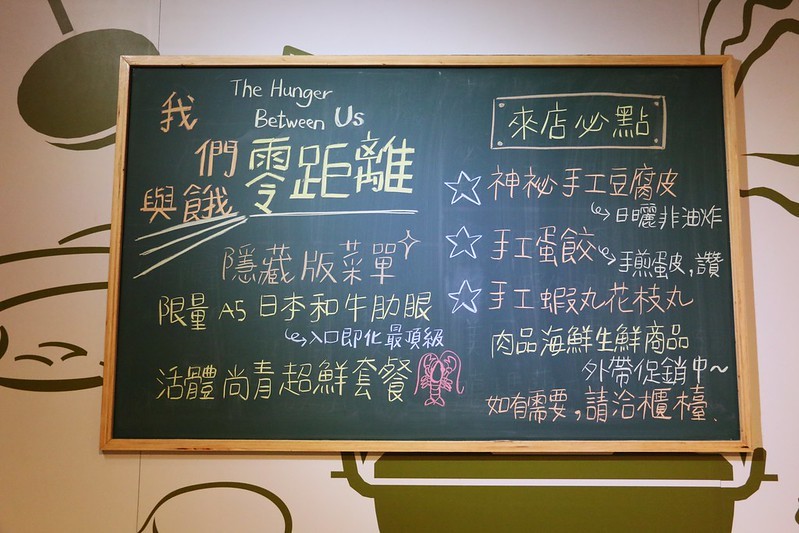 The Hunger
Between Us
我
們 零距離
與餓
隱藏版菜單
限量 A5 日本和牛肋眼
入口即化最頂級
活體尚青超鮮套餐
來店必點
神祕手工豆腐皮
日曬非油炸
手工蛋餃
手煎蛋皮,讚
手工蝦丸花枝丸
肉品海鮮生鮮商品
外帶促銷中~
如有需要,請洽櫃檯.